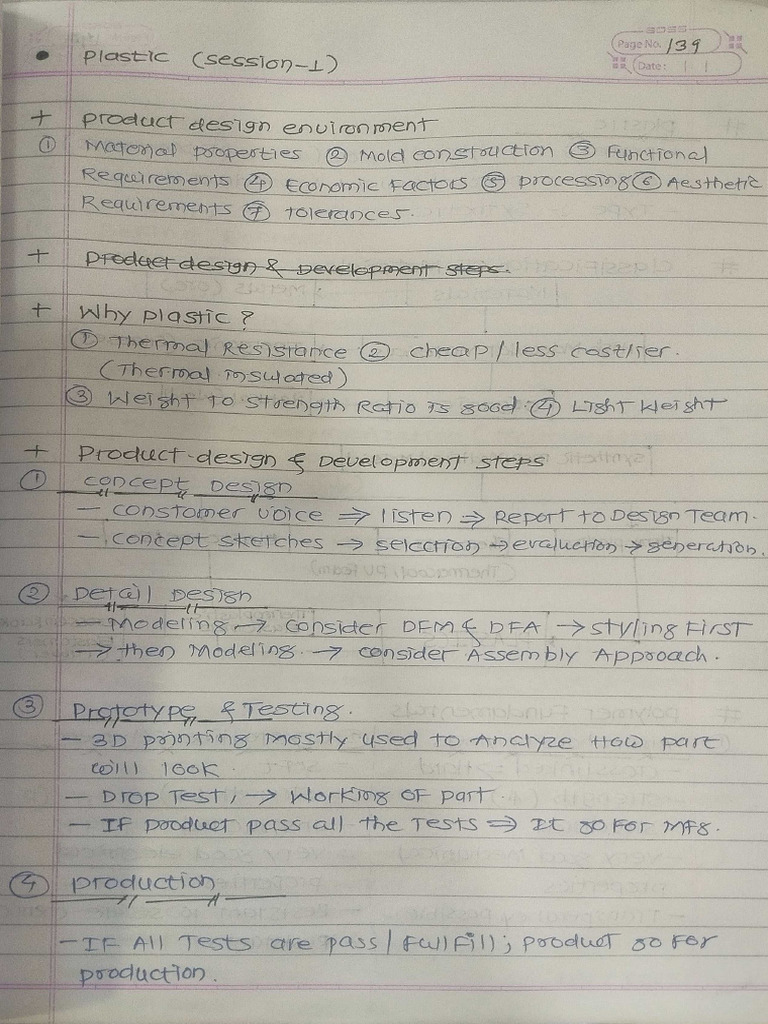 Page No. 139
Date:
• Plastic (session-1)
+ product design environment
① Material properties ② Mold construction ③ Functional
Requirements ④ Economic Factors ⑤ processing ⑥ Aesthetic
Requirements ⑦ tolerances.
+ Product design & Development steps.
+ Why plastic?
① Thermal Resistance ② cheap / less costlier.
(Thermal insulated)
③ Weight to strength Ratio is good ④ Light Weight
+ Product design & Development steps
① concept Design
- constomer voice ⇒ listen ⇒ Report to Design Team.
- concept sketches → selection → evaluation → generation.
② Detail Design
- Modeling → consider DFM & DFA → styling First
→ then Modeling. → consider Assembly Approach.
③ Prototype & Testing.
- 3D printing mostly used to Analyze How part
will look.
- Drop Test, → Working of part.
- IF product pass all the Tests ⇒ It go For Mfg.
④ production
- IF All Tests are pass / fullfill; product go For
production.